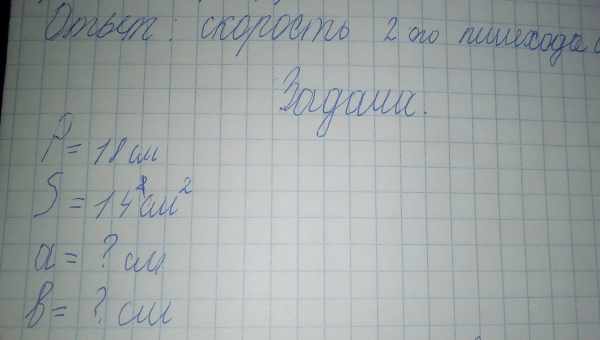 Ответ: скорость 2 ого пешехода
Задача.
P = 18 см
S = 14 см²
a = ? см
b = ? см